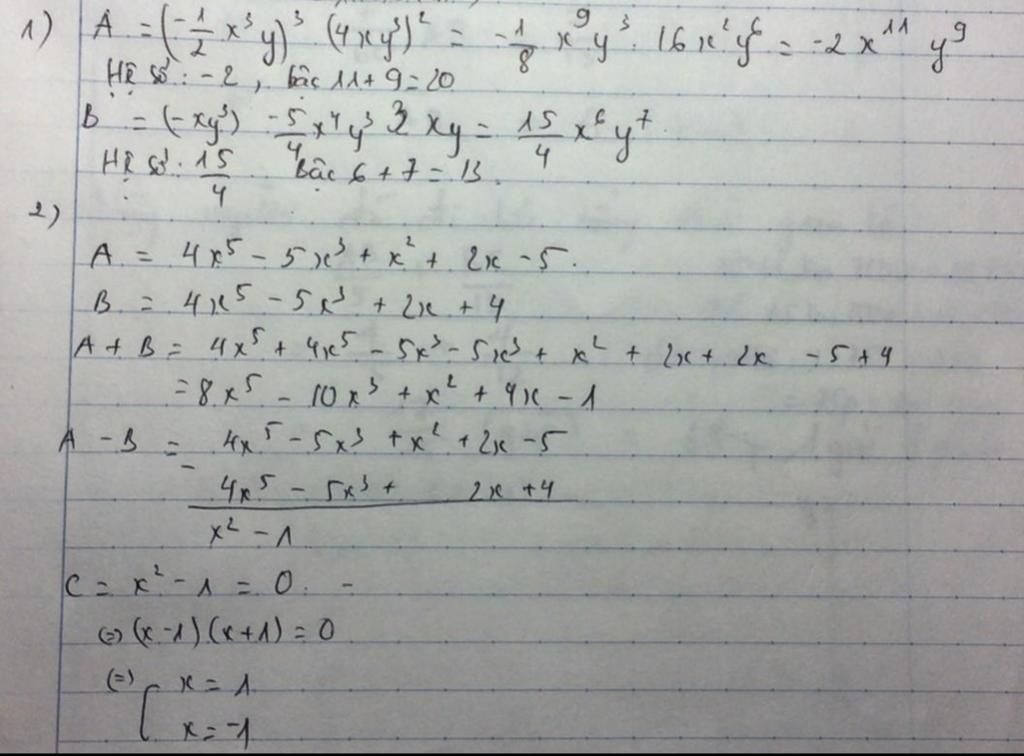 1) A = (-1/2 x³y)³ (4xy³)² = -1/8 x⁹y³. 16x²y⁶ = -2x¹¹ y⁹
Hệ số: -2, bậc 11+9=20
B = (-xy³) -5/4 x⁴y³ 3 xy = 15/4 x⁶y⁷
Hệ số: 15/4 Bậc 6+7=13.
2)
A = 4x⁵ - 5x³ + x² + 2x - 5.
B = 4x⁵ - 5x³ + 2x + 4
A + B = 4x⁵ + 4x⁵ - 5x³ - 5x³ + x² + 2x + 2x - 5 + 4
= 8x⁵ - 10x³ + x² + 4x - 1
A - B = 4x⁵ - 5x³ + x² + 2x - 5
- 4x⁵ - 5x³ + 2x + 4
x² - 1
C = x² - 1 = 0. -
(=) (x-1)(x+1) = 0
(=) [ x = 1
x = -1